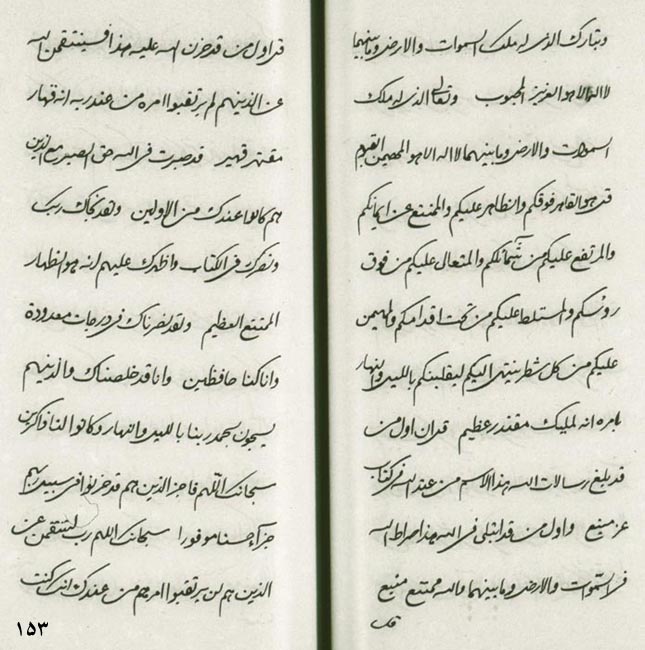 وتبارك الذي له ملك السموات والارض وما بينهما
لا اله الا هو العزيز المحبوب وتعالى الذي له ملك
السموات والارض وما بينهما لا اله الا هو المهيمن القيوم
قل هو القاهر فوقكم والظاهر عليكم والممتنع عن ايمانكم
والمرتفع عليكم من شمائلكم والمتعالى عليكم من فوق
رؤسكم والمستلط عليكم من تحت اقدامكم والمهيمن
عليكم من كل شطر ينتهى اليكم ليقلبنكم بالليل والنهار
بامره انه لمليك مقتدر عظيم قل ان اول من
قد بلغ رسالات الله بهذا الاسم من عند الله في كتاب
عز منيع واول من قد ابتلى في الله بهذا صراط الله
في السموات والارض وما بينهما والله ممتنع منيع
قل
قل اول من قد حزن الله عليه هذا فسينتقمن الله
عن الذينهم لم يرتقبوا امره من عند ربه انه قهار
مقتهر قهير قد صبرت في الله حق الصبر مع الذين
هم كانوا عندك من الاولين ولقد نجاك ربك
ونصرك في الكتاب واظهرك عليهم انه هو الظهار
الممتنع العظيم ولقد نصرناك في درجات معدودة
وانا كنا حافظين وانا قد خلصناك والذينهم
يسبحون بحمد ربنا بالليل والنهار وكانوا لنا ذاكرين
سبحانك اللهم فاجز الذين هم قد حزنوا في سبيل ربهم
جزاء حسنا موفورا سبحانك اللهم رب لتنتقمن عن
الذين هم لن يرتقبوا امرهم من عندك انك كنت
١٥٣